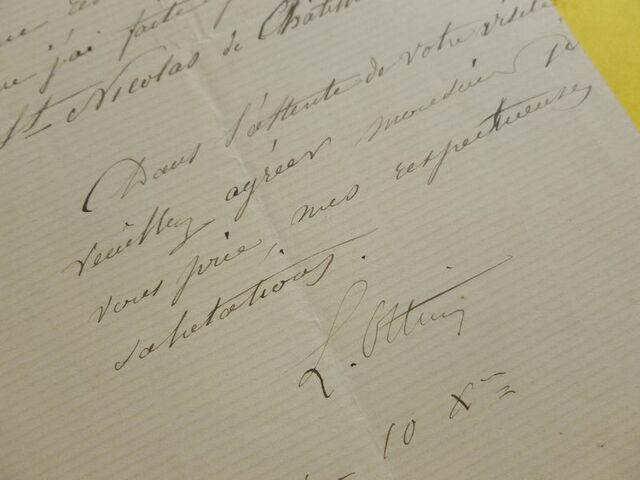 j'ai faite
St Nicolas de Châtill
Dans l'attente de votre visite
veuillez agréer monsieur je
vous prie, mes respectueuses
salutations.
L. Ottin
10 Xbre